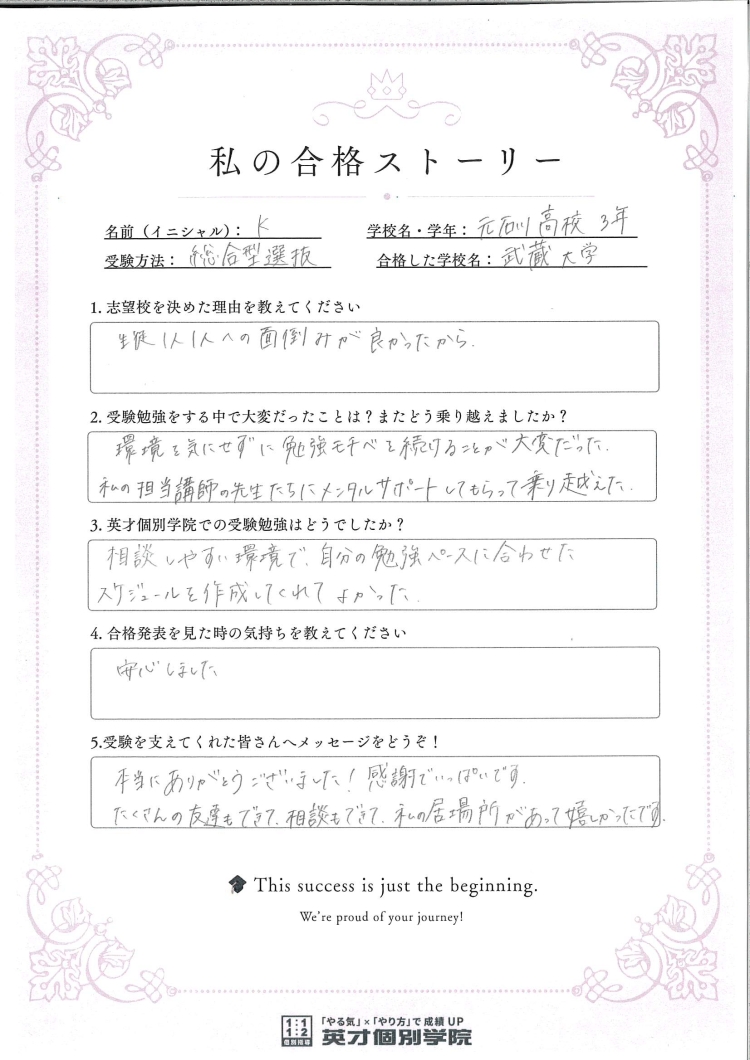 私の合格ストーリー
名前（イニシャル）： K 学校名・学年： 元石川高校 3年
受験方法： 総合型選抜 合格した学校名： 武蔵大学
1. 志望校を決めた理由を教えてください
生徒1人1人への面倒みが良かったから.
2. 受験勉強をする中で大変だったことは？またどう乗り越えましたか？
環境を気にせずに勉強モチベを続けることが大変だった.
私の担当講師の先生たちにメンタルサポートしてもらって乗り越えた.
3. 英才個別学院での受験勉強はどうでしたか？
相談しやすい環境で、自分の勉強ペースに合わせた
スケジュールを作成してくれてよかった.
4. 合格発表を見た時の気持ちを教えてください
安心しました
5.受験を支えてくれた皆さんへメッセージをどうぞ！
本当にありがとうございました！感謝でいっぱいです.
たくさんの友達もできて、相談もできて、私の居場所があって嬉しかったです.
This success is just the beginning.
We're proud of your journey!
1:1
1:2
個別指導
「やる気」×「やり方」で成績UP
英才個別学院